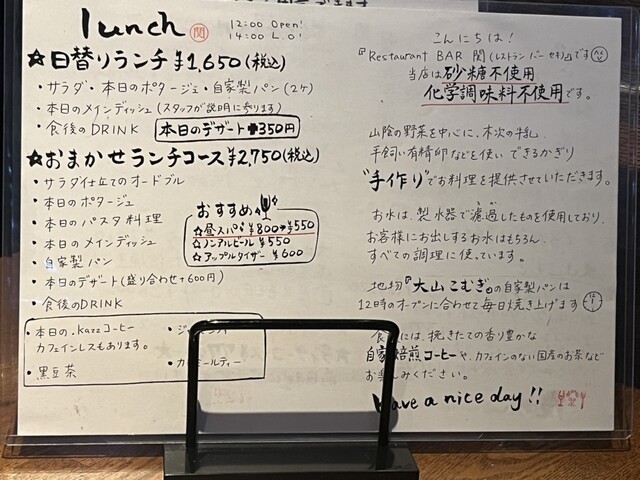 lunch 関 12:00 Open!
14:00 L.O!
☆日替りランチ ¥1,650(税込)
・サラダ・本日のポタージュ・自家製パン(2ケ)
・本日のメインディッシュ(スタッフが説明に参ります)
・食後のDRINK 本日のデザート+350円
☆おまかせランチコース¥2,750(税込)
・サラダ仕立てのオードブル
・本日のポタージュ
・本日のパスタ料理
・本日のメインディッシュ
・自家製パン
・本日のデザート(盛り合わせ+600円)
・食後のDRINK
おすすめ
☆昼スパ ¥800→¥550
☆ノンアルビール ¥550
☆アップルタイザー ¥600
・本日の.kazzコーヒー
カフェインレスもあります。
・黒豆茶
ティー
こんにちは!
『Restaurant BAR 関(レストラン バー セキ)』です
当店は砂糖不使用
化学調味料不使用です。
山陰の野菜を中心に、木次の牛乳
手飼い有精卵などを使い できるかぎり
"手作り"でお料理を提供させていただきます。
お水は、製水器で濾過したものを使用しており、
お客様にお出しするお水はもちろん、
すべての調理に使っています。
地物『大山こむぎ』の自家製パンは
12時のオープンに合わせて毎日焼き上げます
には、挽きたての香り豊かな
自家焙煎コーヒーや、カフェインのない国産のお茶など
お楽しみください。
Have a nice day!!